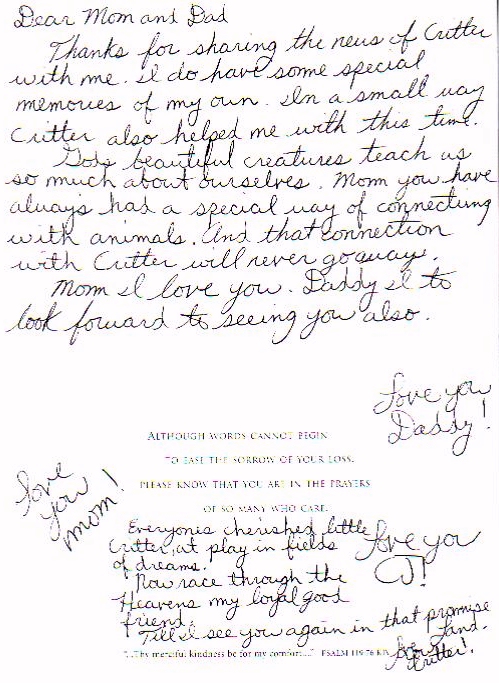 Dear Mom and Dad
Thanks for sharing the news of Critter
with me. I do have some special
memories of my own. In a small way
Critter also helped me with this time.
Gods beautiful creatures teach us
so much about ourselves. Mom you have
always had a special way of connecting
with animals. And that connection
with Critter will never go away.
Mom I love you. Daddy I to
look forward to seeing you also.
Love you
Daddy!
ALTHOUGH WORDS CANNOT BEGIN
TO EASE THE SORROW OF YOUR LOSS,
PLEASE KNOW THAT YOU ARE IN THE PRAYERS
OF SO MANY WHO CARE.
love
you
mom!
Everyones cherished little
Critter, at play in fields
of dreams.
Now race through the
Heavens my loyal good
friend.
Till I see you again in that promise
Land.
love you
CJ!
"...Thy merciful kindness be for my comfort..." PSALM 119:76 KJV
love you
Critter!